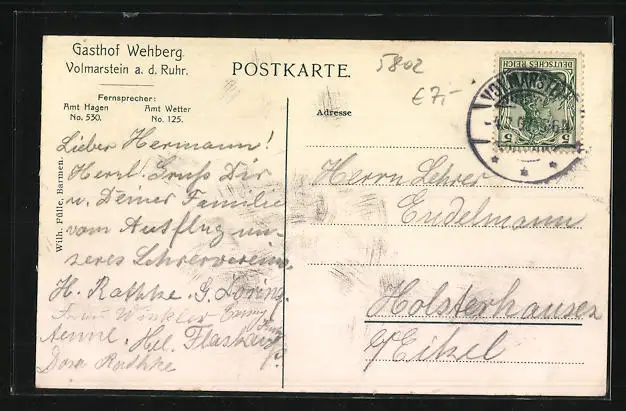 Gasthof Wehberg.
Volmarstein a. d. Ruhr.
Fernsprecher:
Amt Hagen Amt Wetter
No. 530. No. 125.
POSTKARTE.
5802
€ 7,-
Adresse
DEUTSCHES REICH
5 5
VOLMARSTEIN
Wilh. Fülle, Barmen.
Lieber Hermann!
Herzl. Gruß Dir
u. Deiner Familie
vom Ausflug un-
seres Lehrervereins.
H. Rathke. G. Döring.
Winkler Emmy
Aenne. Hel. Flaskamp
Dora Rathke
Herrn Lehrer
Endelmann
Holsterhausen
b/Eikel